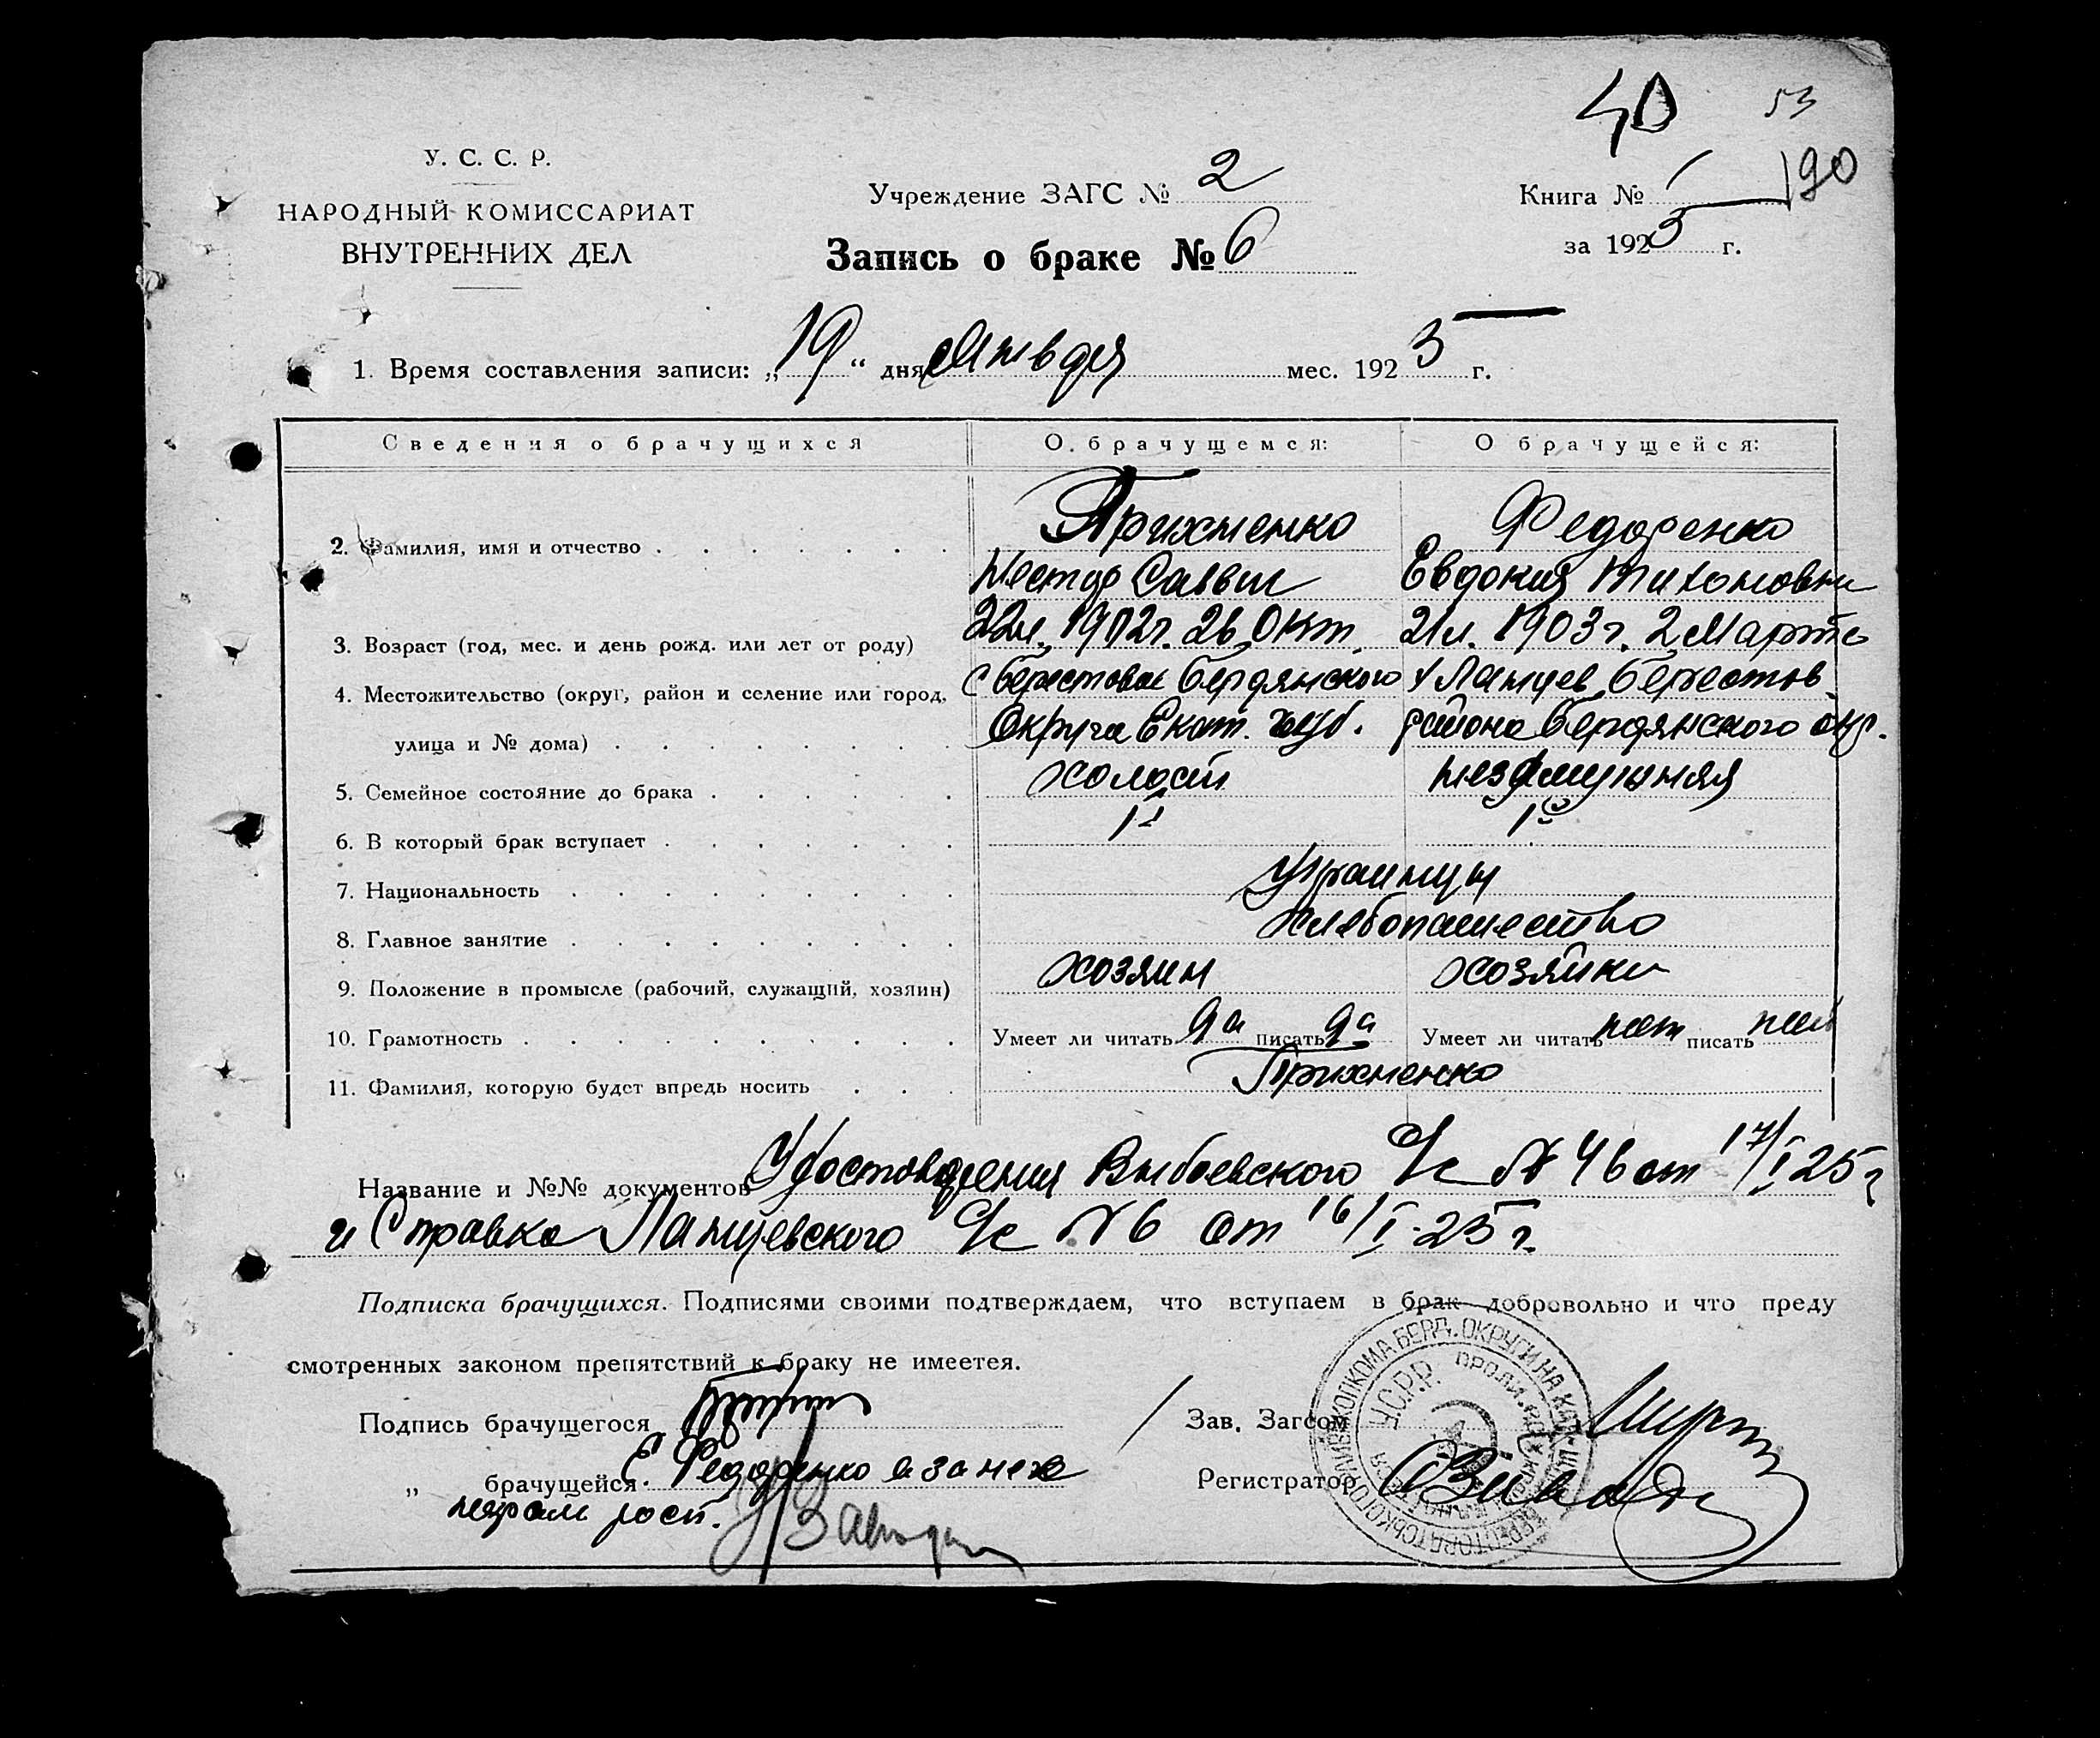 40 53
190
У. С. С. Р.
НАРОДНЫЙ КОМИССАРИАТ
ВНУТРЕННИХ ДЕЛ
Учреждение ЗАГС № 2
Запись о браке № 6
Книга № 1
за 1925 г.
1. Время составления записи: „19“ дня Января мес. 1925 г.
Сведения о брачущихся О брачущемся: О брачущейся:
2. Фамилия, имя и отчество Прихненко Федоренко
Нестор Саввич Евдокия Тихоновна
3. Возраст (год, мес. и день рожд. или лет от роду) 22 л. 1902 г. 26 Окт. 21 л. 1903 г. 2 Марта
4. Местожительство (округ, район и селение или город, с Берестовое Бердянского х Ланцев Берестов.
улица и № дома) Округа Екат. губ. района Бердянского окр.
5. Семейное состояние до брака холост незамужняя
6. В который брак вступает 1й 1й
7. Национальность Украинцы
8. Главное занятие хлебопашество
9. Положение в промысле (рабочий, служащий, хозяин) хозяин хозяйка
10. Грамотность Умеет ли читать да писать да Умеет ли читать нет писать нет
11. Фамилия, которую будет впредь носить Прихненко
Название и №№ документов Удостоверения с/с № 46 от 17/I 25 г
и Справка Ланцевского с/с № 6 от 16/I-25 г.
Подписка брачущихся. Подписями своими подтверждаем, что вступаем в брак добровольно и что преду
смотренных законом препятствий к браку не имеется.
Подпись брачущегося
Зав. Загсом
„ брачущейся Е Федоренко а за нее
неграм. росп.
Регистратор
У.С.Р.Р.
БЕРД. ОКРУГИ НА КАТ-ЩИНІ